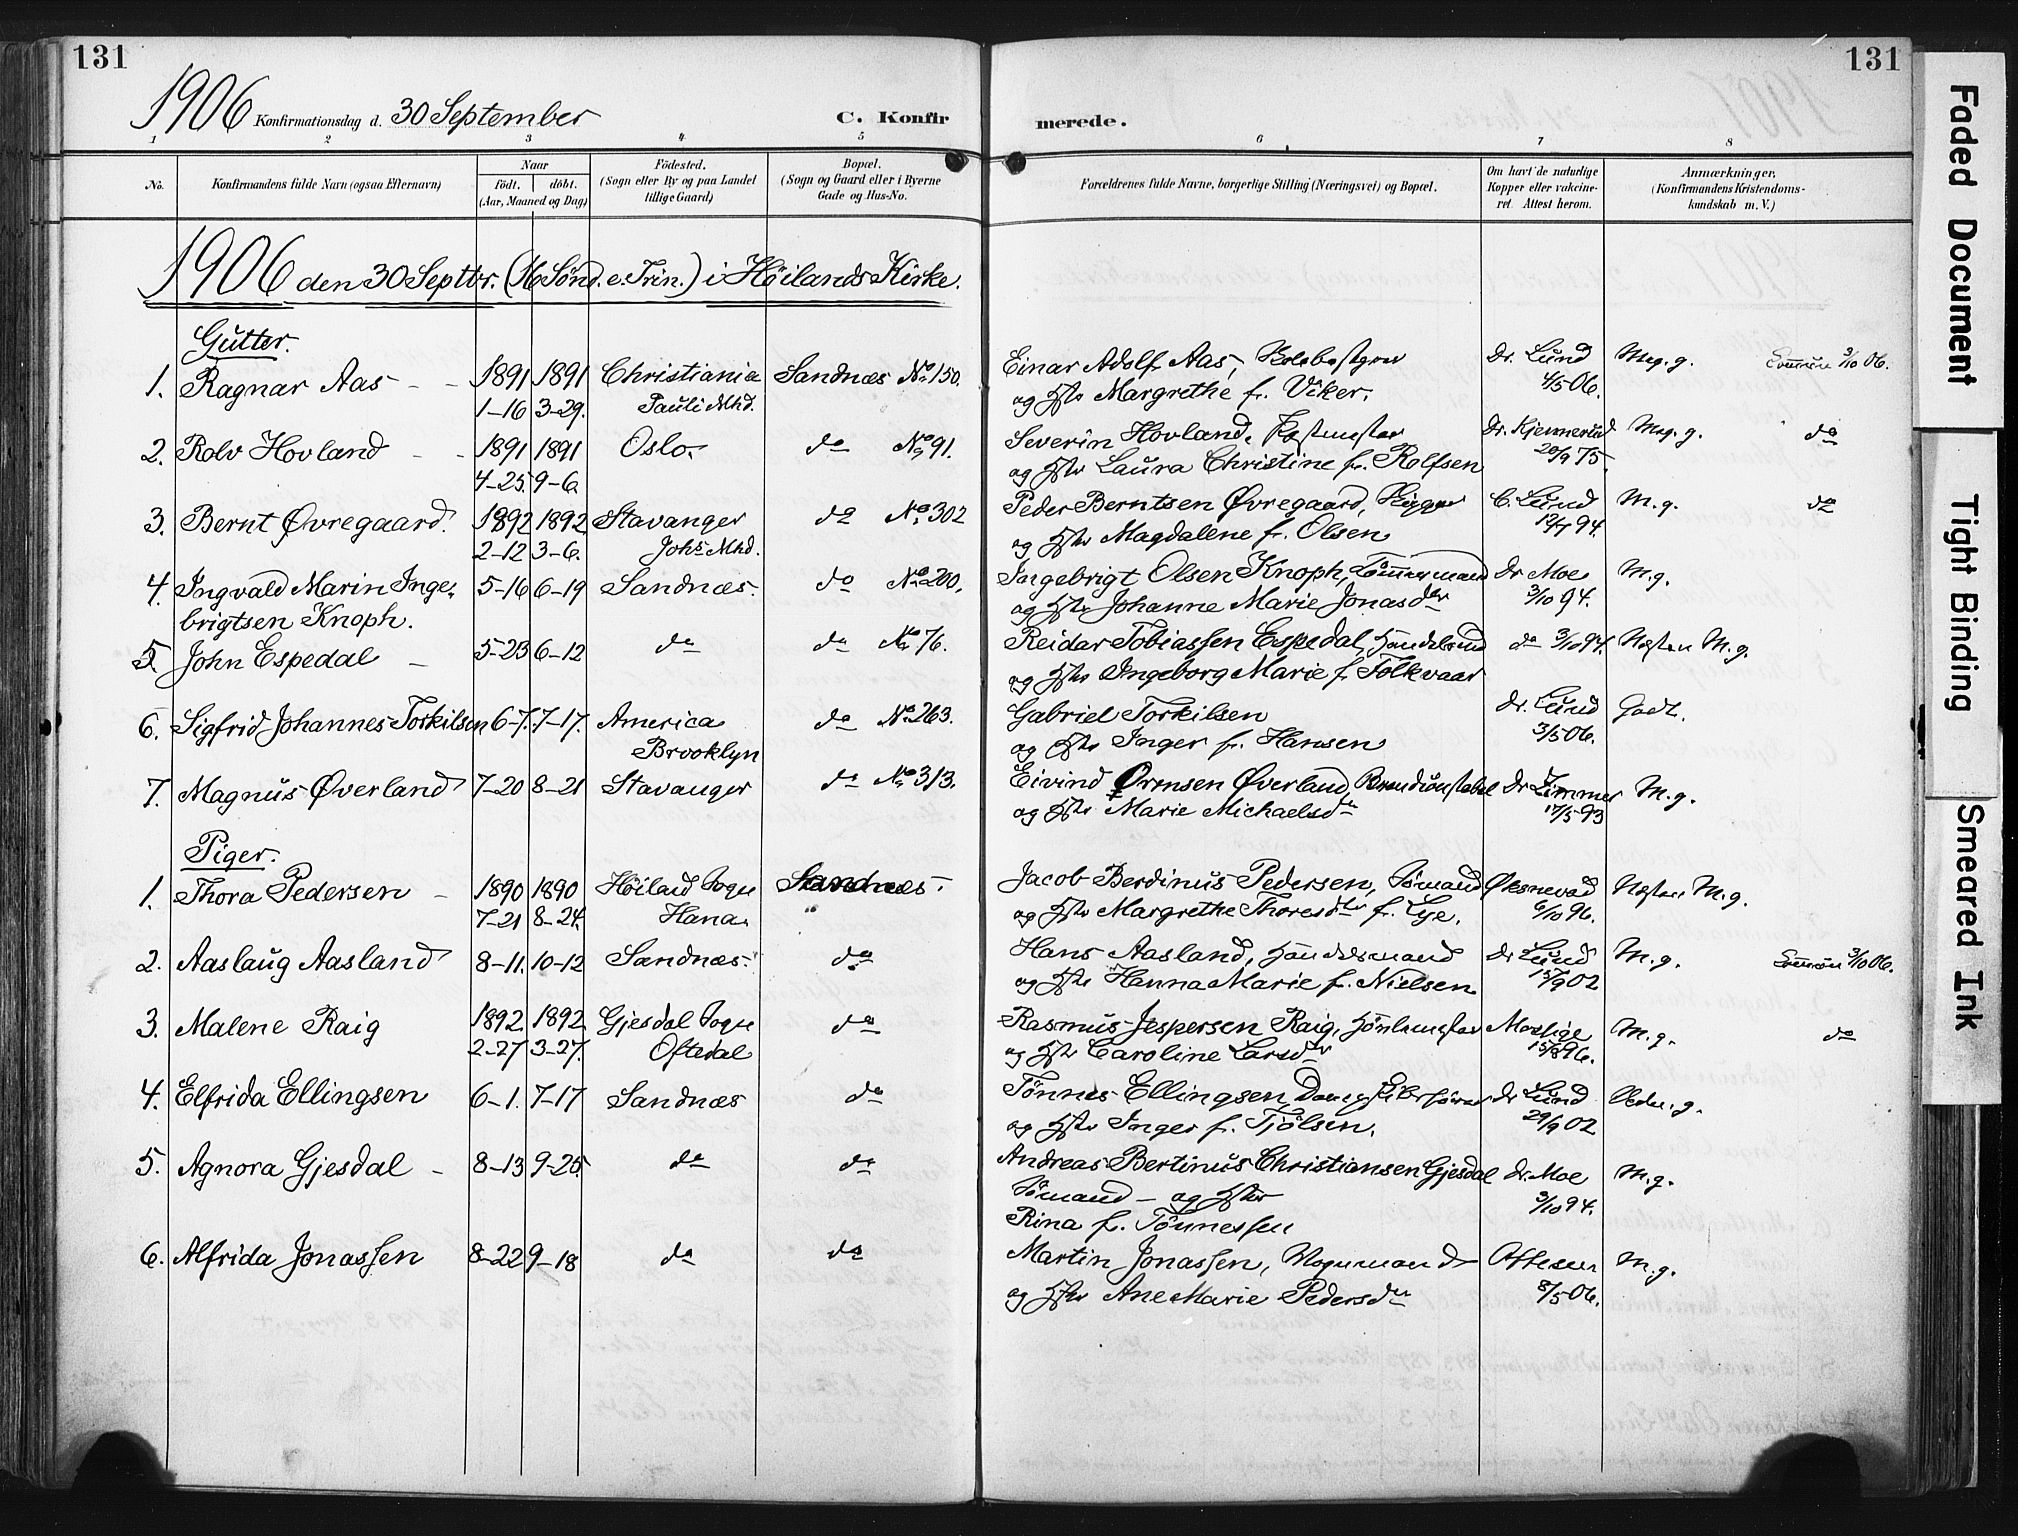 131
131
1906 Konfirmationsdag d. 30 September
C. Konfir
merede.
1 2 3 4 5 6 7 8
No.
Konfirmandens fulde Navn (ogsaa Efternavn)
Naar
födt. döbt.
(Aar, Maaned og Dag)
Födested.
(Sogn eller By og paa Landet
tillige Gaard)
Bopæl.
(Sogn og Gaard eller i Byerne
Gade og Hus-No.
Forældrenes fulde Navne, borgerlige Stilling (Næringsvei) og Bopæl.
Om havt de naturlige
Kopper eller vakcine-
ret. Attest herom.
Anmærkninger.
(Konfirmandens Kristendoms-
kundskab m. V.)
1906 den 30 Septbr. (16 Sønd. e. Trin.) i Höilands Kirke.
Gutter.
1. Ragnar Aas 1891 1891 Christiania Sandnæs No 150. Einar Adolf Aas, Dr. Lund Meg. g. 3/10 06.
1-16 3-29. Pauli Mhd. og Hstr Margrethe f. Viker. 4/5 06.
2. Rolv Hovland 1891 1891 Oslo. do No 91. Severin Hovland, Dr. Kjennerud Meg. g. do
4-25. 9-6. og Hstr Laura Christine f. Rolfsen 20/9 75.
3. Bernt Øvregaard. 1892 1892 Stavanger do No 302 Peder Berntsen Øvregaard, C. Lund M. g. do
2-12 3-6. Johs Mhd. og Hstr Magdalene f. Olsen 94.
4. Ingvald Marin Inge- 5-16 6-19 Sandnæs. do No 200. Ingebrigt Olsen Knoph, Tömmermand Dr Moe M. g.
brigtsen Knoph. og Hstr Johanne Marie Jonasdtr 3/10 94.
5. John Espedal 5-23 6-12 do do No 76. Reidar Tobiassen Espedal, do 3/10 94. Næsten M. g.
og Hstr Ingeborg Marie f. Folkvaar
6. Sigfrid Johannes Torkilsen 6-7. 7-17. America do No 263. Gabriel Torkilsen Dr. Lund Godt.
Brooklyn og Hstr Inger f. Hansen 3/5 06.
7. Magnus Øverland 7-20 8-21 Stavanger do No 313. Eivind Ørensen Øverland, Dr Zimmer M. g.
og Hstr Marie Michaelsdr 17/5 93
Piger.
1. Thora Pedersen 1890 1890 Höiland Sogn Sandnæs. Jacob Berdinus Pedersen, Sömand Øksnevad Næsten M. g.
7-21 8-24. Hana. " og Hstr Margrethe Thoresdtr f. Lye. 6/10 96.
2. Aaslaug Aasland 8-11. 10-12 Sandnæs. do Hans Aasland, Handelsmand Dr Lund M. g. 3/10 06.
og Hstr Hanna Marie f. Nielsen 15/9 02
3. Malene Raig 1892 1892 Gjesdal Sogn do Rasmus Jespersen Raig, Mossige M. g. do
2-27 3-27. Oftedal og Hstr Caroline Larsdr 15/8 96.
4. Elfrida Ellingsen 6-1. 7-17 Sandnæs do Tönnes Ellingsen, Dr Lund Udm. g.
og Hstr Inger f. Tjölsen. 29/9 02
5. Agnora Gjesdal 8-13 9-25 do do Andreas Bertinus Christiansen Gjesdal Dr. Moe M. g.
Sömand - og Hstr 3/10 94.
Rina f. Tönnessen
6. Alfrida Jonassen 8-22 9-18 do do Martin Jonassen, Vognmand Oftesen M. g.
og Hstr Ane Marie Pedersdtr 8/5 06.
Faded Document
Tight Binding
Smeared Ink